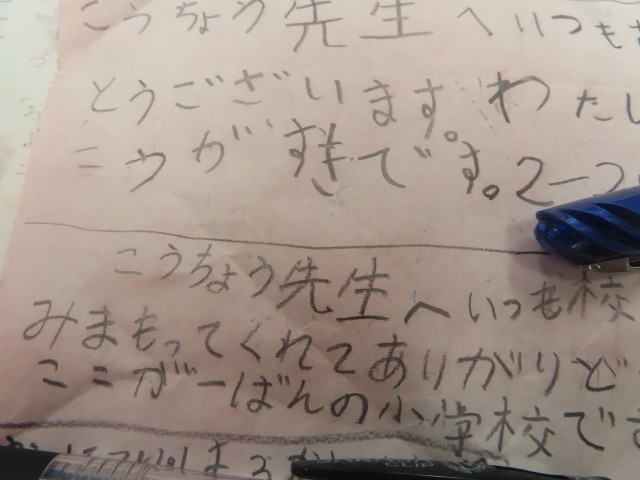 こうちょう先生へいつも
とうございます。わたし
こうがすきです。2-2
こうちょう先生へいつも校
みまもってくれてありがりど
ここがーばんの小学校です